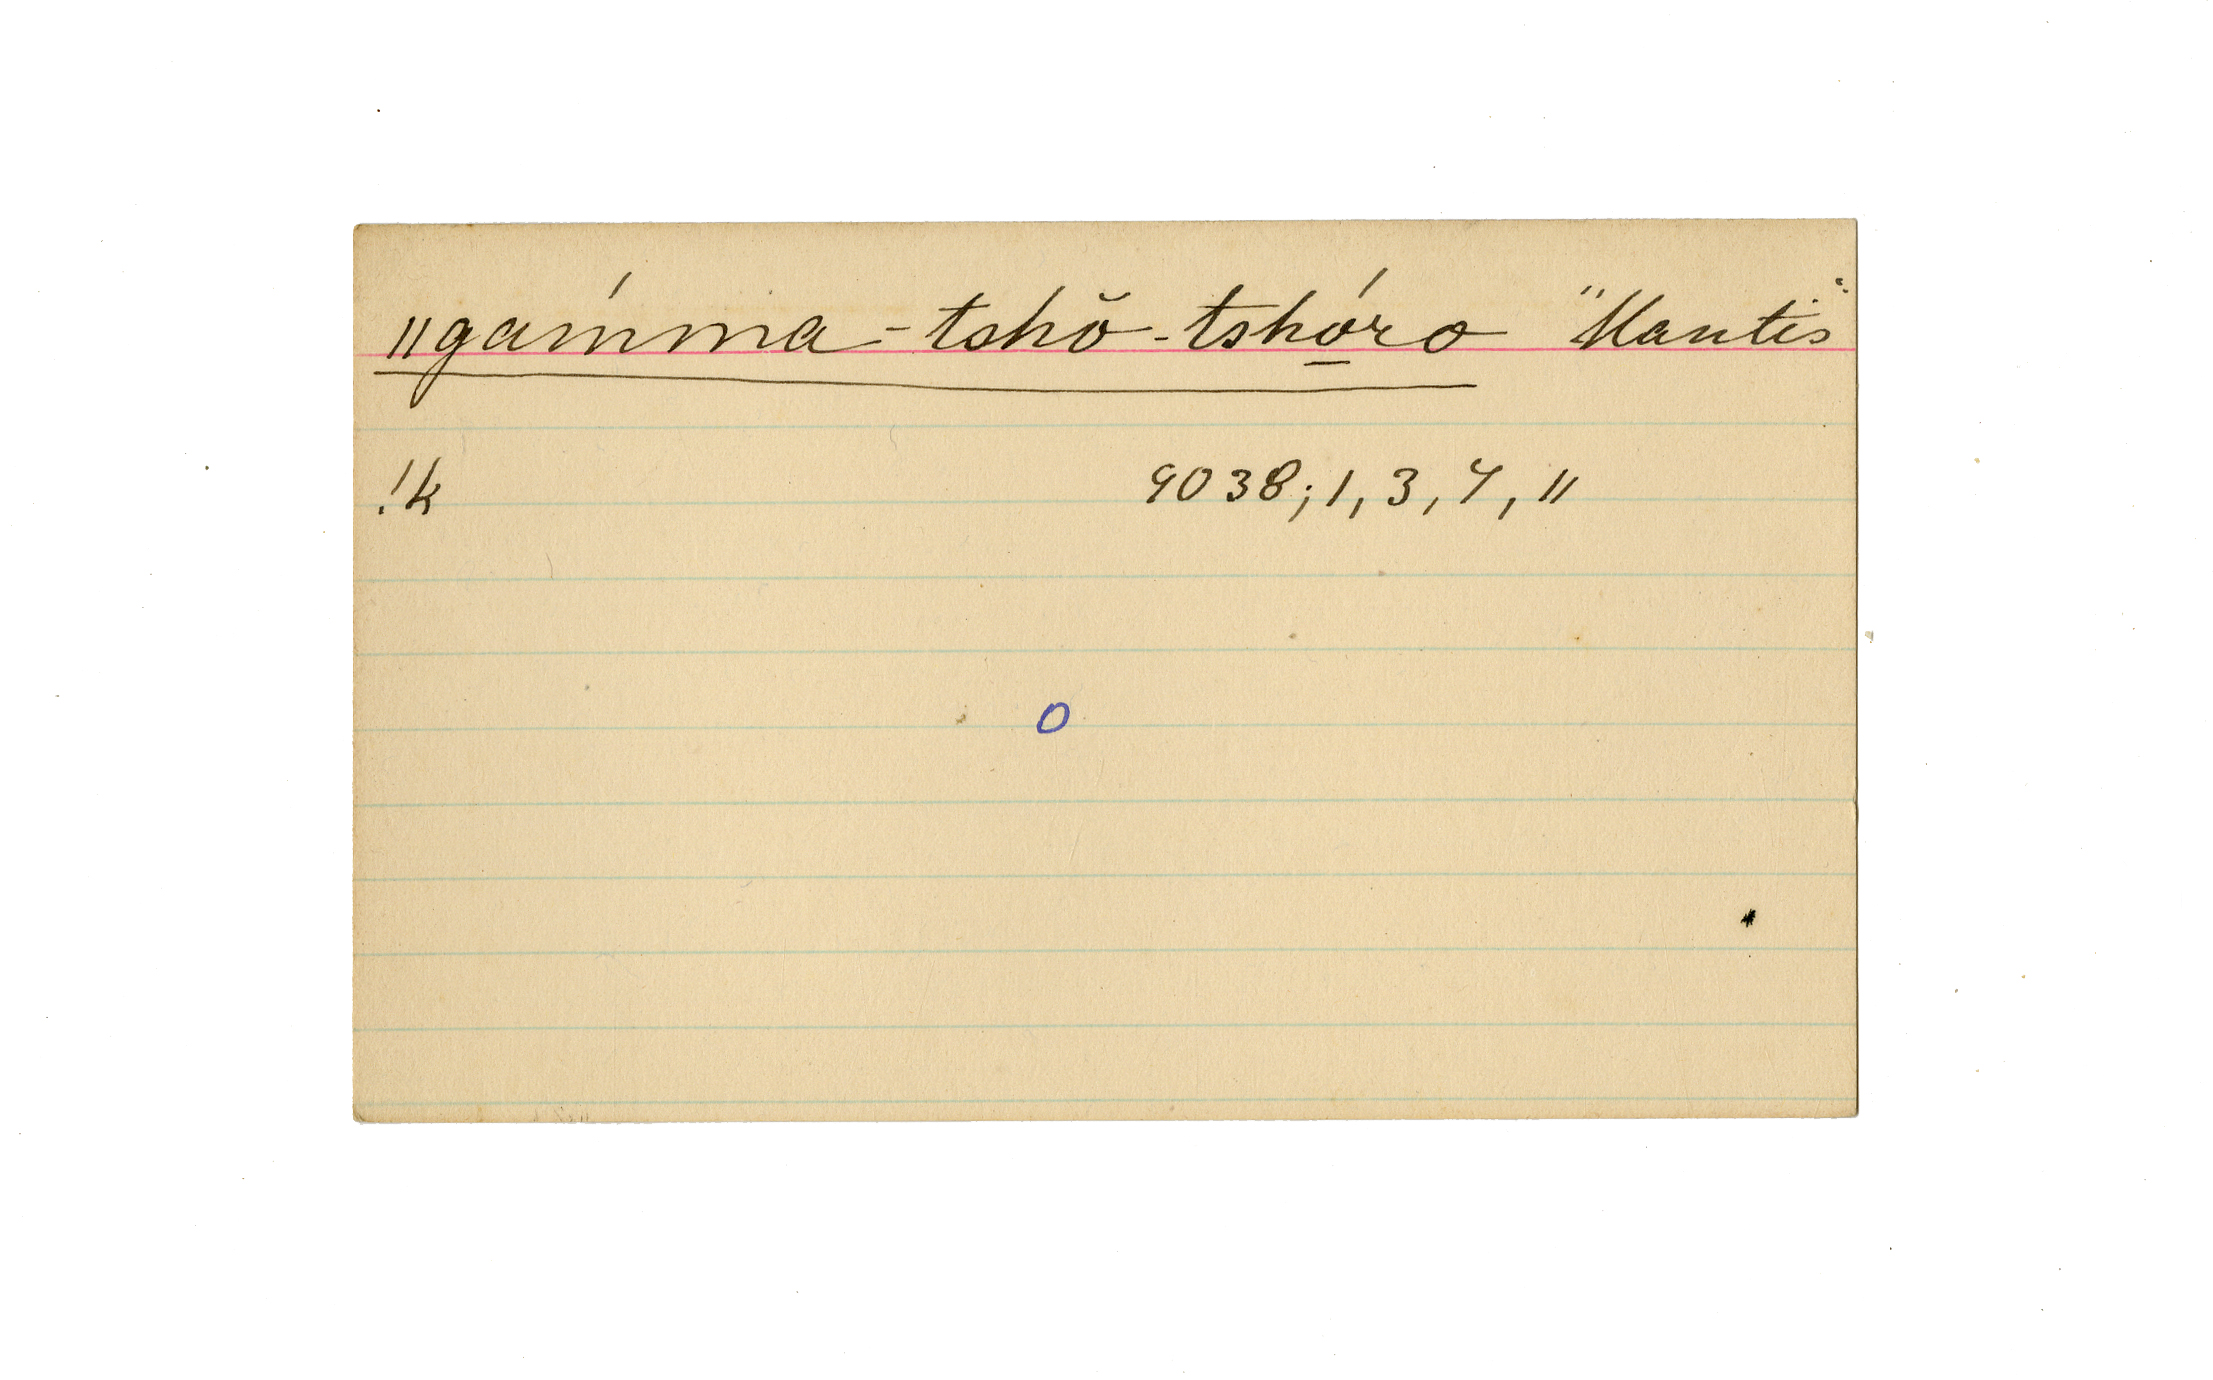 ǁgaḿma-tshŏ-tshó̱ro "Mantis"
!k 9038; 1, 3, 7, 11
o